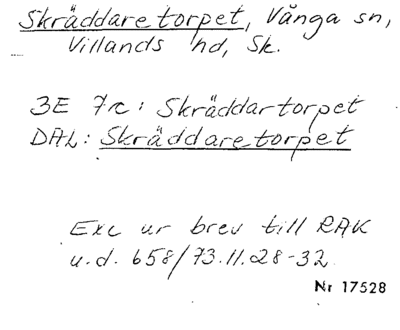 Skräddaretorpet, Vånga sn,
Villands hd, Sk.
3E 7c: Skräddartorpet
DAL: Skräddaretorpet
Exc ur brev till RAK
u.d. 658/73.11.28-32
Nr 17528